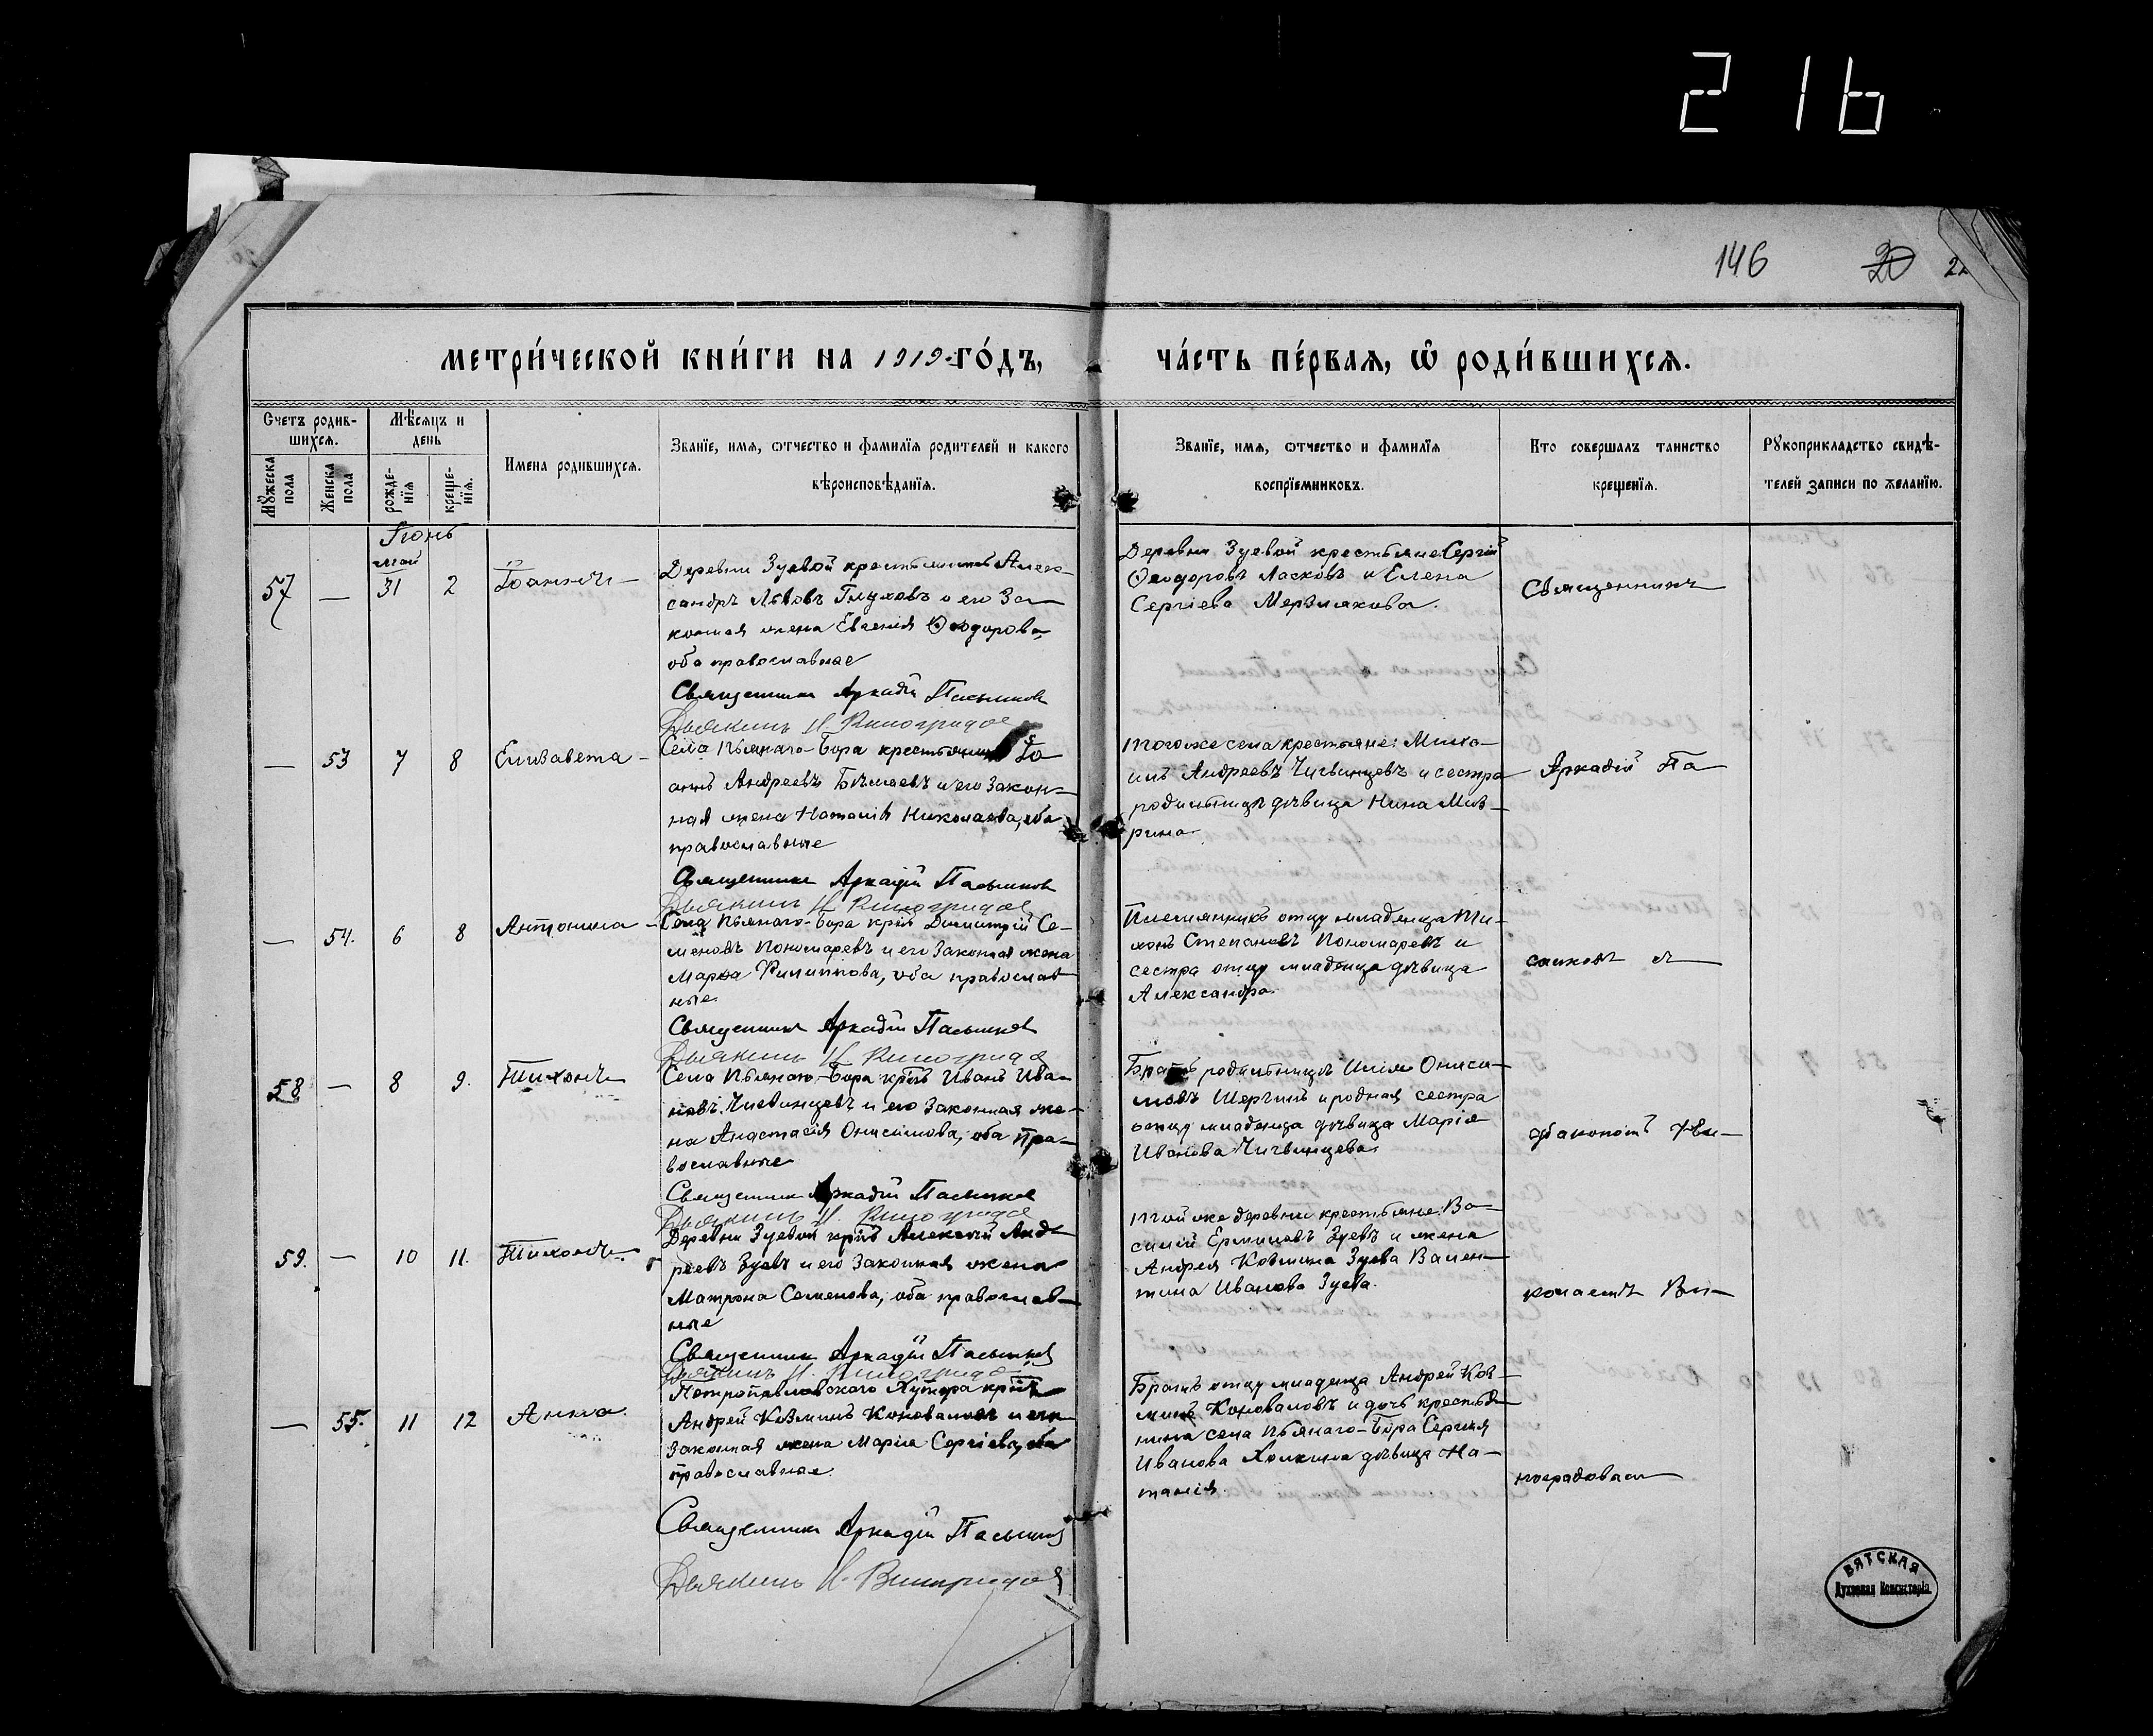 216
146 20 22
метри́ческой кни́ги на 1919 го́дъ, ча́сть пе́рвая, ѡ҆ роди́вшихся.
Счетъ родив-
шихся.
Мѣсяцъ и
день
Мꙋжеска
пола
Женска
пола
рожде-
нїя
креще-
нїя.
Имена родившихся.
Званїе, имя, ѿтчество и фамилїя родителей и какого
вѣроисповѣданїя.
Званїе, имя, ѿтчество и фамилїя
воспрїемниковъ.
Кто совершалъ таинство
крещенїя.
Рꙋкоприкладство свидѣ-
телей записи по желанїю.
Іюнь
май
57 — 31 2 Іоаннъ —
Деревни Зуевой крестьянинъ Алек-
сандръ Львовъ Глуховъ и его за-
конная жена Евгенія Ѳеодорова,
оба православные
Священникъ Аркадій Пасынков
Дьяконъ Н. Виноградов
Деревни Зуевой крестьяне Сергій
Ѳеодоровъ Ласковъ и Елена
Сергіева Мерзлякова.
Священникъ
— 53 7 8 Елизавета —
Села Пьянаго-Бора крестьянинъ Іо-
аннъ Андреевъ и его закон-
ная жена Наталія Николаева, оба
православные
Священникъ Аркадій Пасынков
Дьяконъ Н. Виноградов
Того же села крестьяне: Миха-
илъ Андреевъ Чигвинцевъ и сестра
родильницы дѣвица Нина
Аркадій Па
— 54. 6 8 Антонина —
Села Пьянаго-Бора кр̃нъ Димитрій Се-
меновъ Пономаревъ и его законная жена
Марѳа Филиппова, оба православ-
ные.
Священникъ Аркадій Пасынков
Дьяконъ Н. Виноградов
Племянникъ отцу младенца Ти-
хонъ Степановъ Пономаревъ и
сестра отцу младенца дѣвица
Александра.
сынковъ съ
58 — 8 9. Тихонъ
Села Пьянаго-Бора кр̃нъ Иванъ Ива-
новъ Чигвинцевъ и его законная же-
на Анастасія Онисимова, оба пра-
вославные
Священникъ Аркадій Пасынков
Дьяконъ Н. Виноградов
Братъ родильницы Илія Ониси-
мовъ Шергинъ и родная сестра
отцу младенца дѣвица Марія
Иванова Чигвинцева.
діакономъ Ни-
59. — 10 11. Тихонъ
Деревни Зуевой кр̃нъ Алексій Анд-
реевъ Зуевъ и его законная жена
Матрона Семенова, оба православ-
ные
Священникъ Аркадій Пасынков
Дьяконъ Н. Виноградов
Той же деревни крестьяне: Ва-
силій Ермиловъ Зуевъ и жена
Андрея Козмина Зуева Вален-
тина Иванова Зуева.
колаемъ Ви-
— 55. 11 12 Анна.
Петропавловского Хутора кр̃нъ
Андрей Козминъ Коноваловъ и его
законная жена Марія Сергіева, оба
православные.
Священникъ Аркадій Пасынков
Дьяконъ Н. Виноградов
Братъ отцу младенца Андрей Коз-
минъ Коноваловъ и дочь крестья-
нина села Пьянаго-Бора Сергія
Иванова Холкина дѣвица На-
талія.
ноградовым
ВЯТСКАЯ
Духовная Консисторія.